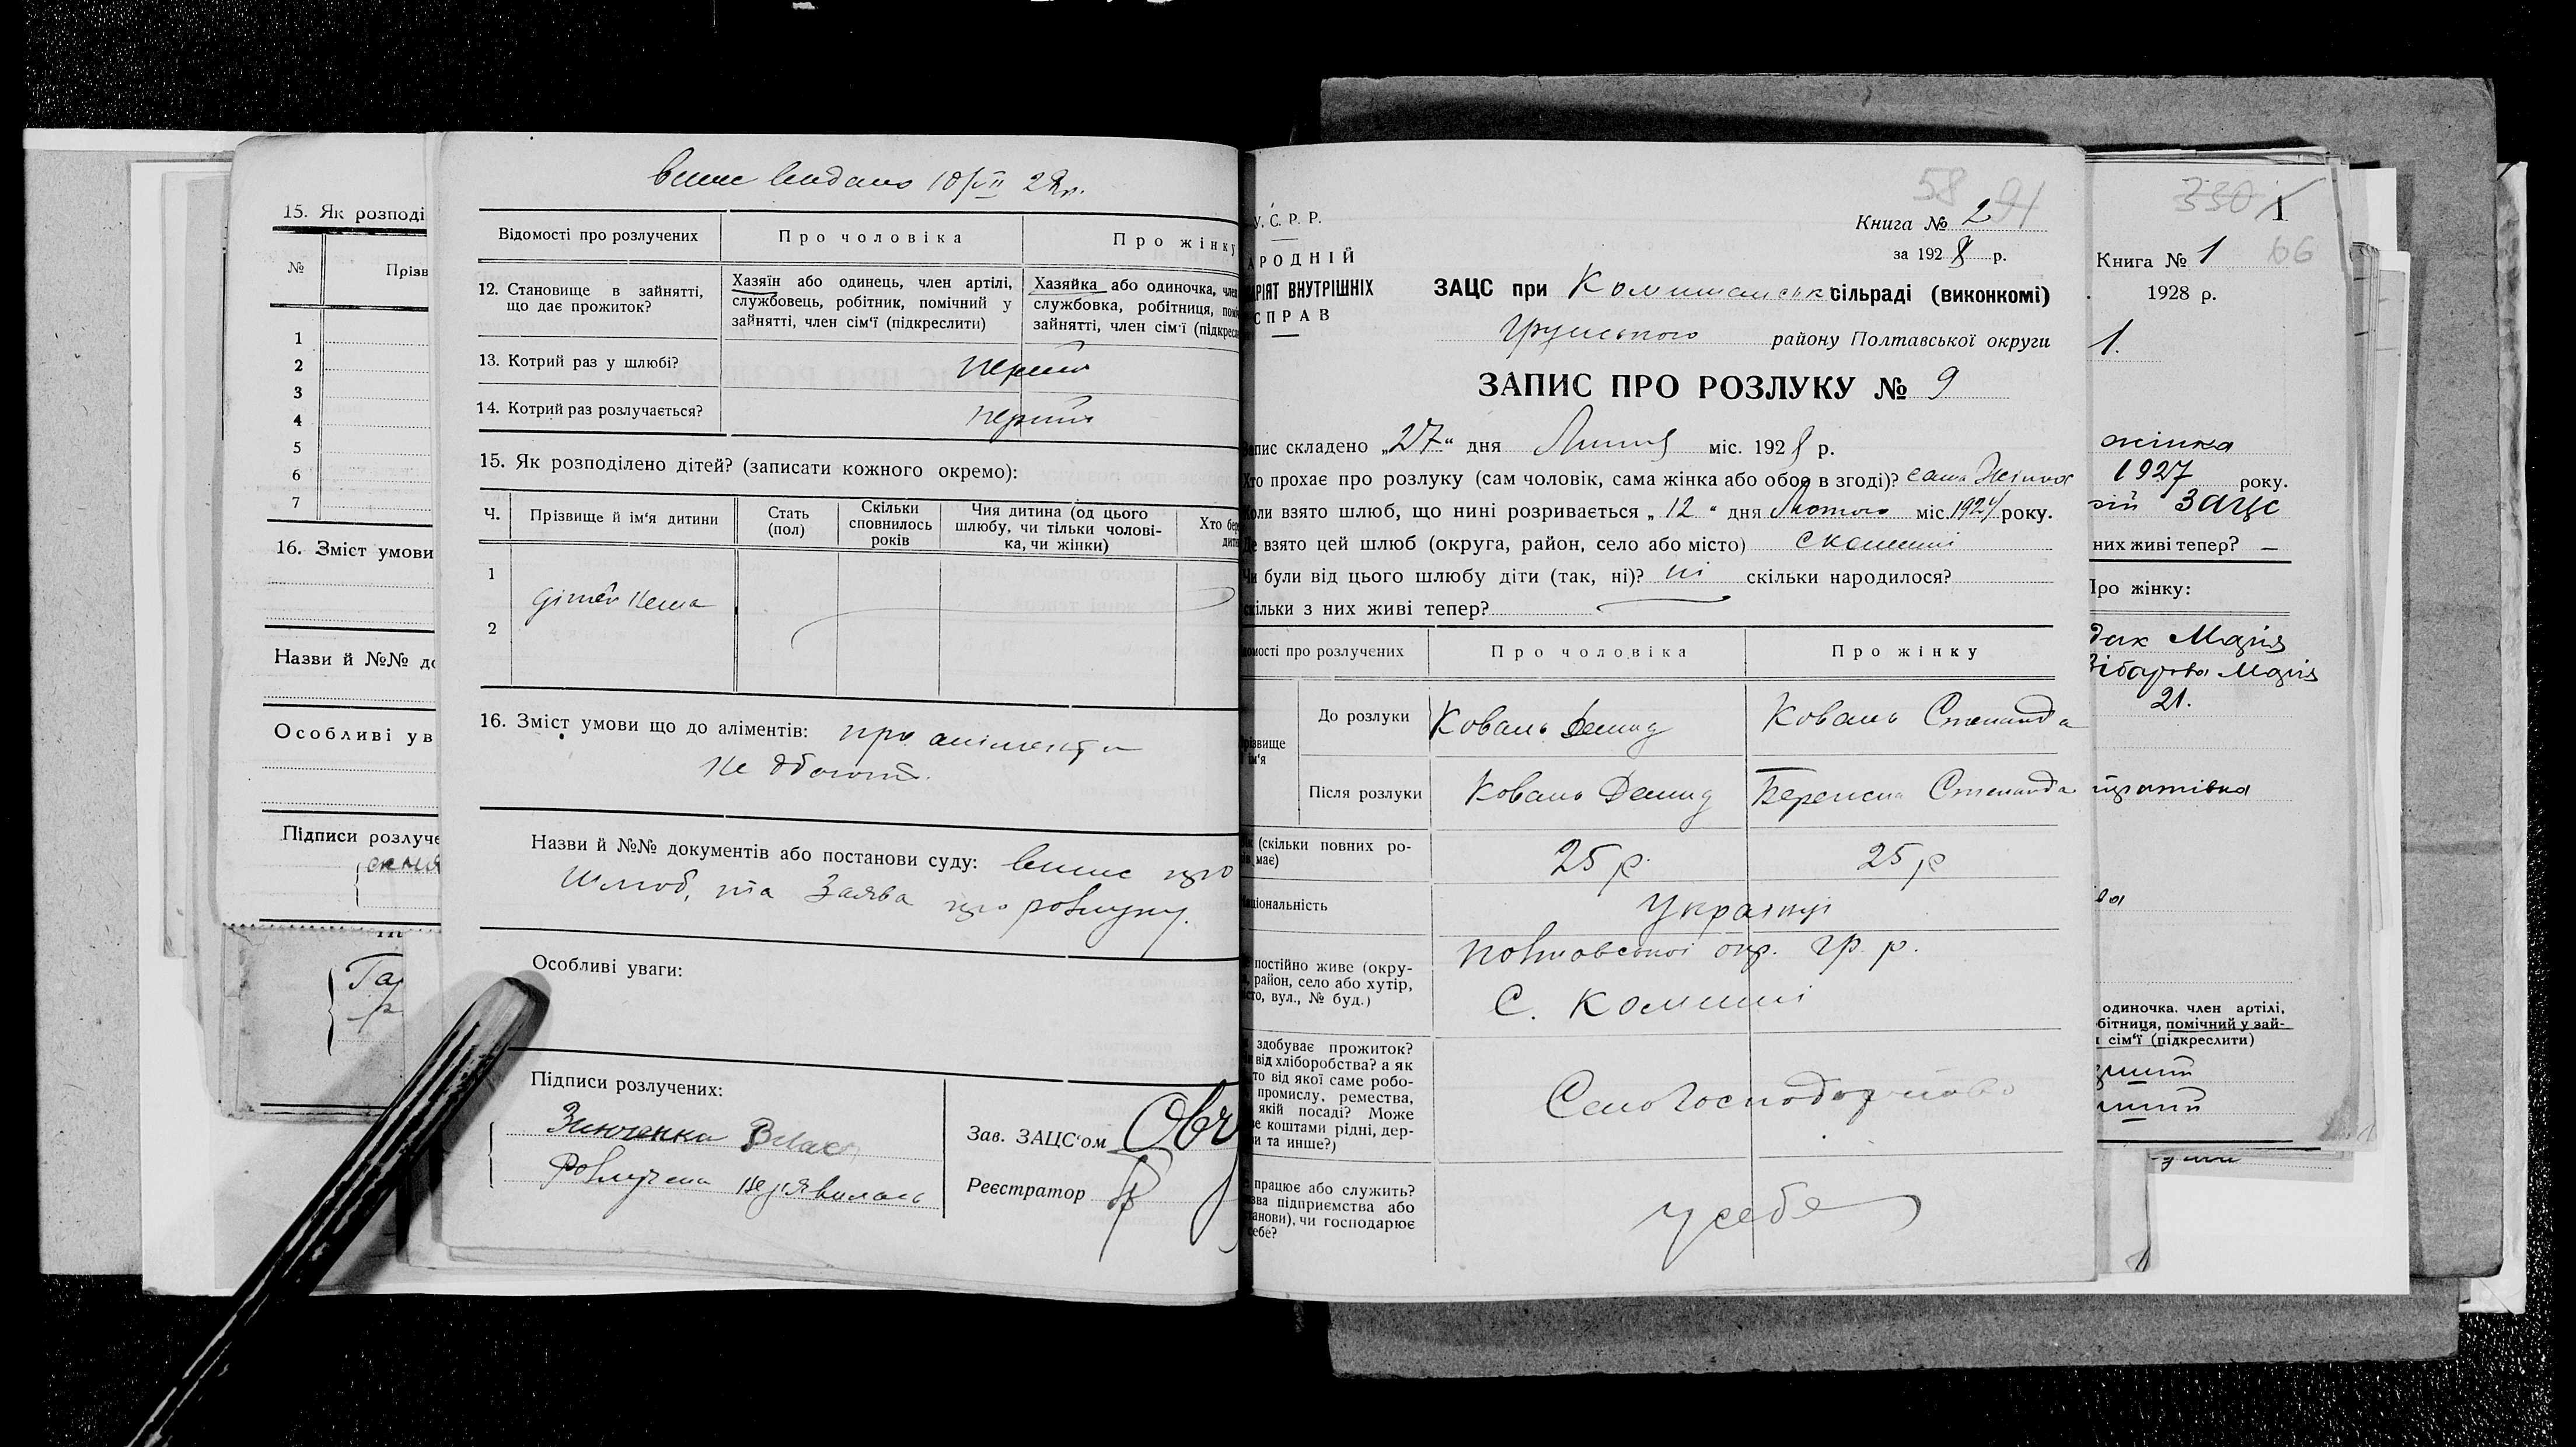 15. Як розподі
№
Прізв
1
2
3
4
5
6
7
16. Зміст умови
Назви й №№ до
Особливі ув
Підписи розлуче
видано 10/VII 28 р.
Відомості про розлучених
Про чоловіка
Про жінку
12. Становище в зайнятті, що дає прожиток?
Хазяїн або одинець, член артілі,
службовець, робітник, помічний у
зайнятті, член сім'ї (підкреслити)
Хазяйка або одиночка, член
службовка, робітниця, поміч
зайнятті, член сім'ї (підкресл
13. Котрий раз у шлюбі?
перший
14. Котрий раз розлучається?
перший
15. Як розподілено дітей? (записати кожного окремо):
Ч.
Прізвище й ім'я дитини
Стать
(пол)
Скільки
сповнилось
років
Чия дитина (од цього
шлюбу, чи тільки чолові-
ка, чи жінки)
Хто бер
дити
1
дітей нема
2
16. Зміст умови що до аліментів: про аліменти
не дбають.
Назви й №№ документів або постанови суду: випис про
шлюб, та Заява про розлуку.
Особливі уваги:
Підписи розлучених:
Розлучена не явилась
Зав. ЗАЦС'ом
Реєстратор
58
91
У. С. Р. Р.
АРОДНІЙ
АРІЯТ ВНУТРІШНІХ
СПРАВ
Книга № 2
за 1928 р.
ЗАЦС при Комишанськ сільраді (виконкомі)
Грунського району Полтавської округи
ЗАПИС ПРО РОЗЛУКУ № 9
Запис складено „27" дня Липня міс. 1928 р.
Хто прохає про розлуку (сам чоловік, сама жінка або обоє в згоді)? сама жінка
Коли взято шлюб, що нині розривається „12" дня Лютого міс. 1924 року.
Де взято цей шлюб (округа, район, село або місто) с комиші
Чи були від цього шлюбу діти (так, ні)? ні скільки народилося?
скільки з них живі тепер?
домості про розлучених
Про чоловіка
Про жінку
різвище
ім'я
До розлуки
Коваль Демид
Коваль Степанида
Після розлуки
Коваль Демид
Степанида
ік (скільки повних ро-
ів має)
25 р.
25 р
ціональність
Українці
постійно живе (окру-
, район, село або хутір,
сто, вул., № буд.)
Полтавської окр. Гр. р.
С. Комиші
здобуває прожиток?
від хліборобства? а як
то від якої саме робо-
промислу, ремества,
якій посаді? Може
е коштами рідні, дер-
и та инше?)
працює або служить?
зва підприємства або
танови), чи господарює
себе?
у себе
330
1
66
Книга № 1
1928 р.
1.
жінка
1927 року.
ЗАЦС
них живі тепер? —
Про жінку:
дак Марія
Марія
21.
одиночка. член артілі,
бітниця, помічний у зай-
сім'ї (підкреслити)